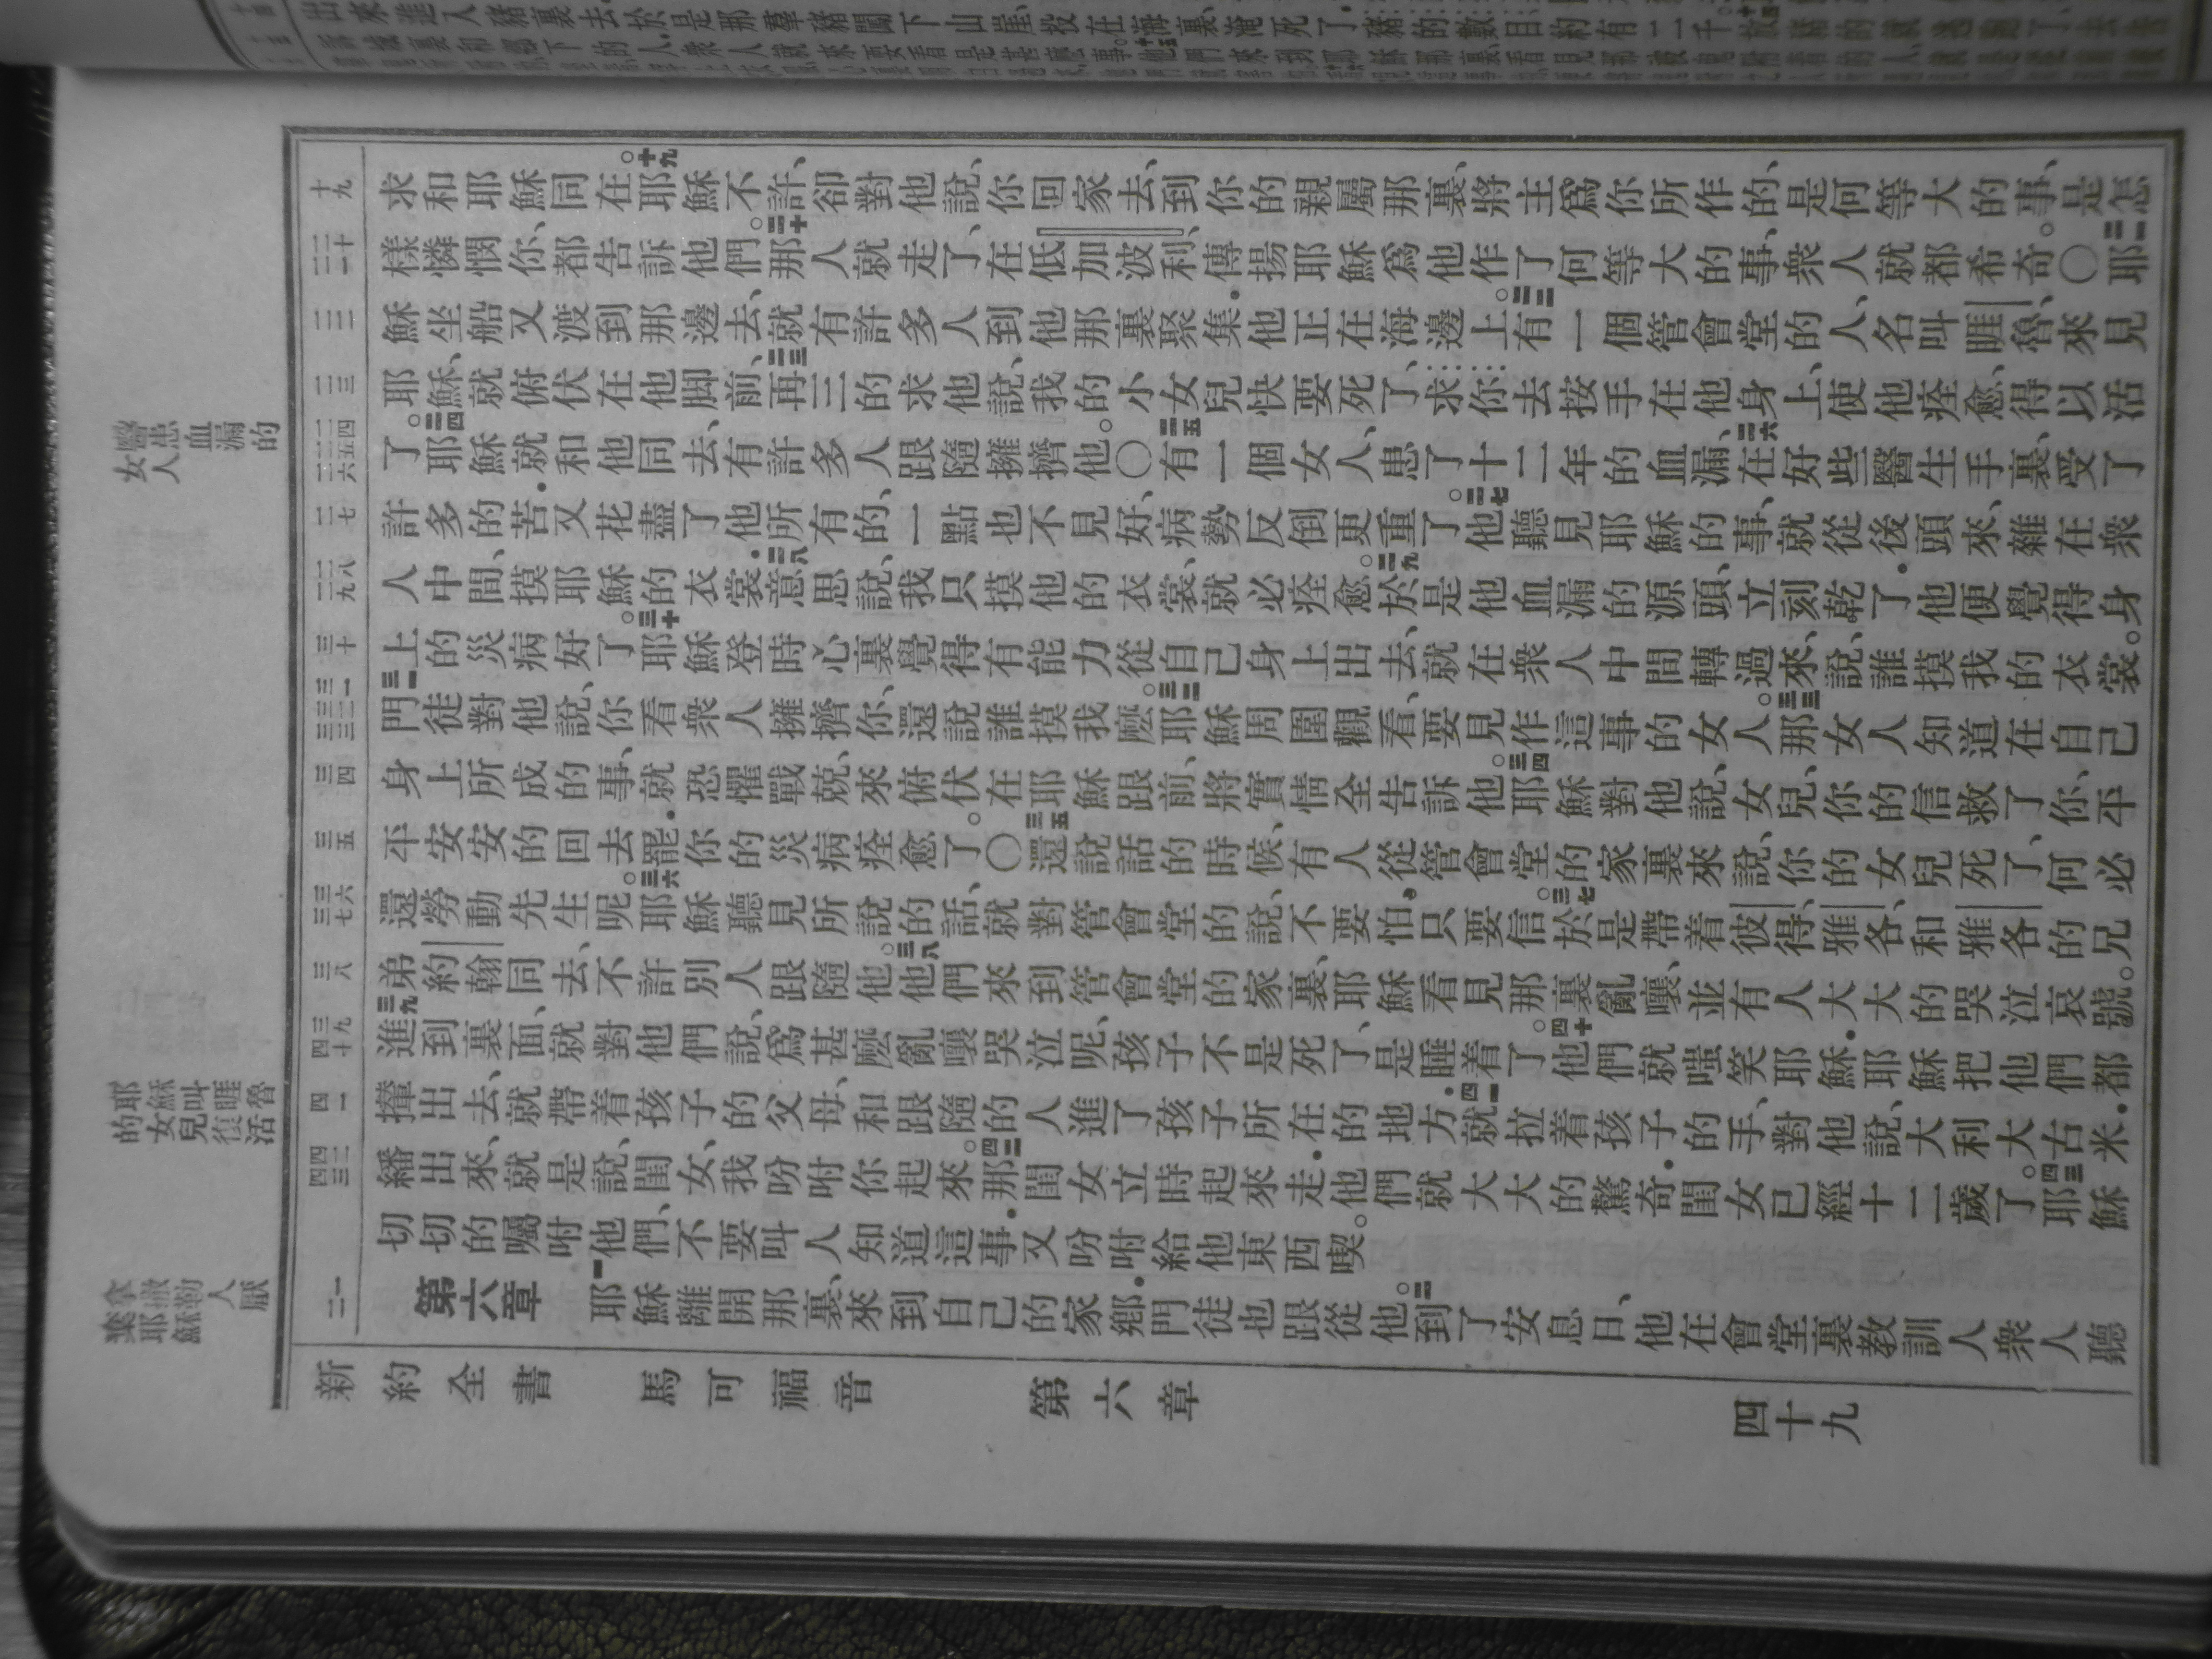 求和耶穌同在。十九耶穌不許、卻對他說、你回家去、到你的親屬那裏、將主爲你所作的、是何等大的事、是怎
樣憐憫你、都告訴他們。二十那人就走了、在低加波利、傳揚耶穌爲他作了何等大的事、衆人就都希奇。〇二一耶
穌坐船又渡到那邊去、就有許多人到他那裏聚集．他正在海邊上。二二有一個管會堂的人、名叫睚魯、來見
耶穌、就俯伏在他脚前、二三再三的求他說、我的小女兒快要死了、求你去按手在他身上、使他痊愈、得以活
了。二四耶穌就和他同去、有許多人跟隨擁擠他。〇二五有一個女人、患了十二年的血漏、二六在好些醫生手裏、受了
許多的苦．又花盡了他所有的、一點也不見好、病勢反倒更重了。二七他聽見耶穌的事、就從後頭來、雜在衆
人中間、摸耶穌的衣裳．二八意思說、我只摸他的衣裳、就必痊愈。二九於是他血漏的源頭、立刻乾了．他便覺得身
上的災病好了。三十耶穌登時心裏覺得有能力從自己身上出去、就在衆人中間轉過來、說、誰摸我的衣裳。
三一門徒對他說、你看衆人擁擠你、還說誰摸我麽。三二耶穌周圍觀看、要見作這事的女人。三三那女人知道在自己
身上所成的事、就恐懼戰兢、來俯伏在耶穌跟前、將實情全告訴他。三四耶穌對他說、女兒、你的信救了你、平
平安安的回去罷．你的災病痊愈了。〇三五還說話的時候、有人從管會堂的家裏來、說、你的女兒死了、何必
還勞動先生呢。三六耶穌聽見所說的話、就對管會堂的說、不要怕．只要信。三七於是帶着彼得、雅各、和雅各的兄
弟約翰同去、不許別人跟隨他。三八他們來到管會堂的家裏、耶穌看見那裏亂嚷、並有人大大的哭泣哀號。
三九進到裏面、就對他們說、爲甚麽亂嚷哭泣呢、孩子不是死了、是睡着了。四十他們就嗤笑耶穌．耶穌把他們都
攆出去、就帶着孩子的父母、和跟隨的人進了孩子所在的地方．四一就拉着孩子的手、對他說、大利大古米．
繙出來、就是說、閨女、我吩咐你起來。四二那閨女立時起來走．他們就大大的驚奇．閨女已經十二歲了。四三耶穌
切切的囑咐他們、不要叫人知道這事．又吩咐給他東西喫。
第六章 一耶穌離開那裏、來到自己的家鄉．門徒也跟從他。二到了安息日、他在會堂裏教訓人．衆人聽
新約全書 馬可福音 第六章 四十九
醫患血漏的女人
耶穌叫睚魯的女兒復活
拿撒勒人厭棄耶穌
十九
二十 二一
二二
二三
二四 二五 二六
二七
二八 二九
三十
三一 三二 三三
三四
三五
三六 三七
三八
三九 四十
四一
四二 四三
一 二